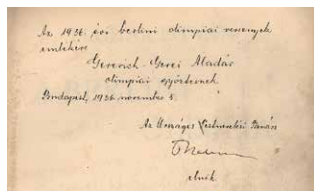 Az 1936. évi berlini olimpiai versenyek
emlékére
Gerevich-Gerei Aladár
olimpiai győztesnek
Budapest, 1936 november 5.
Az Országos Testnevelési Tanács
elnök.